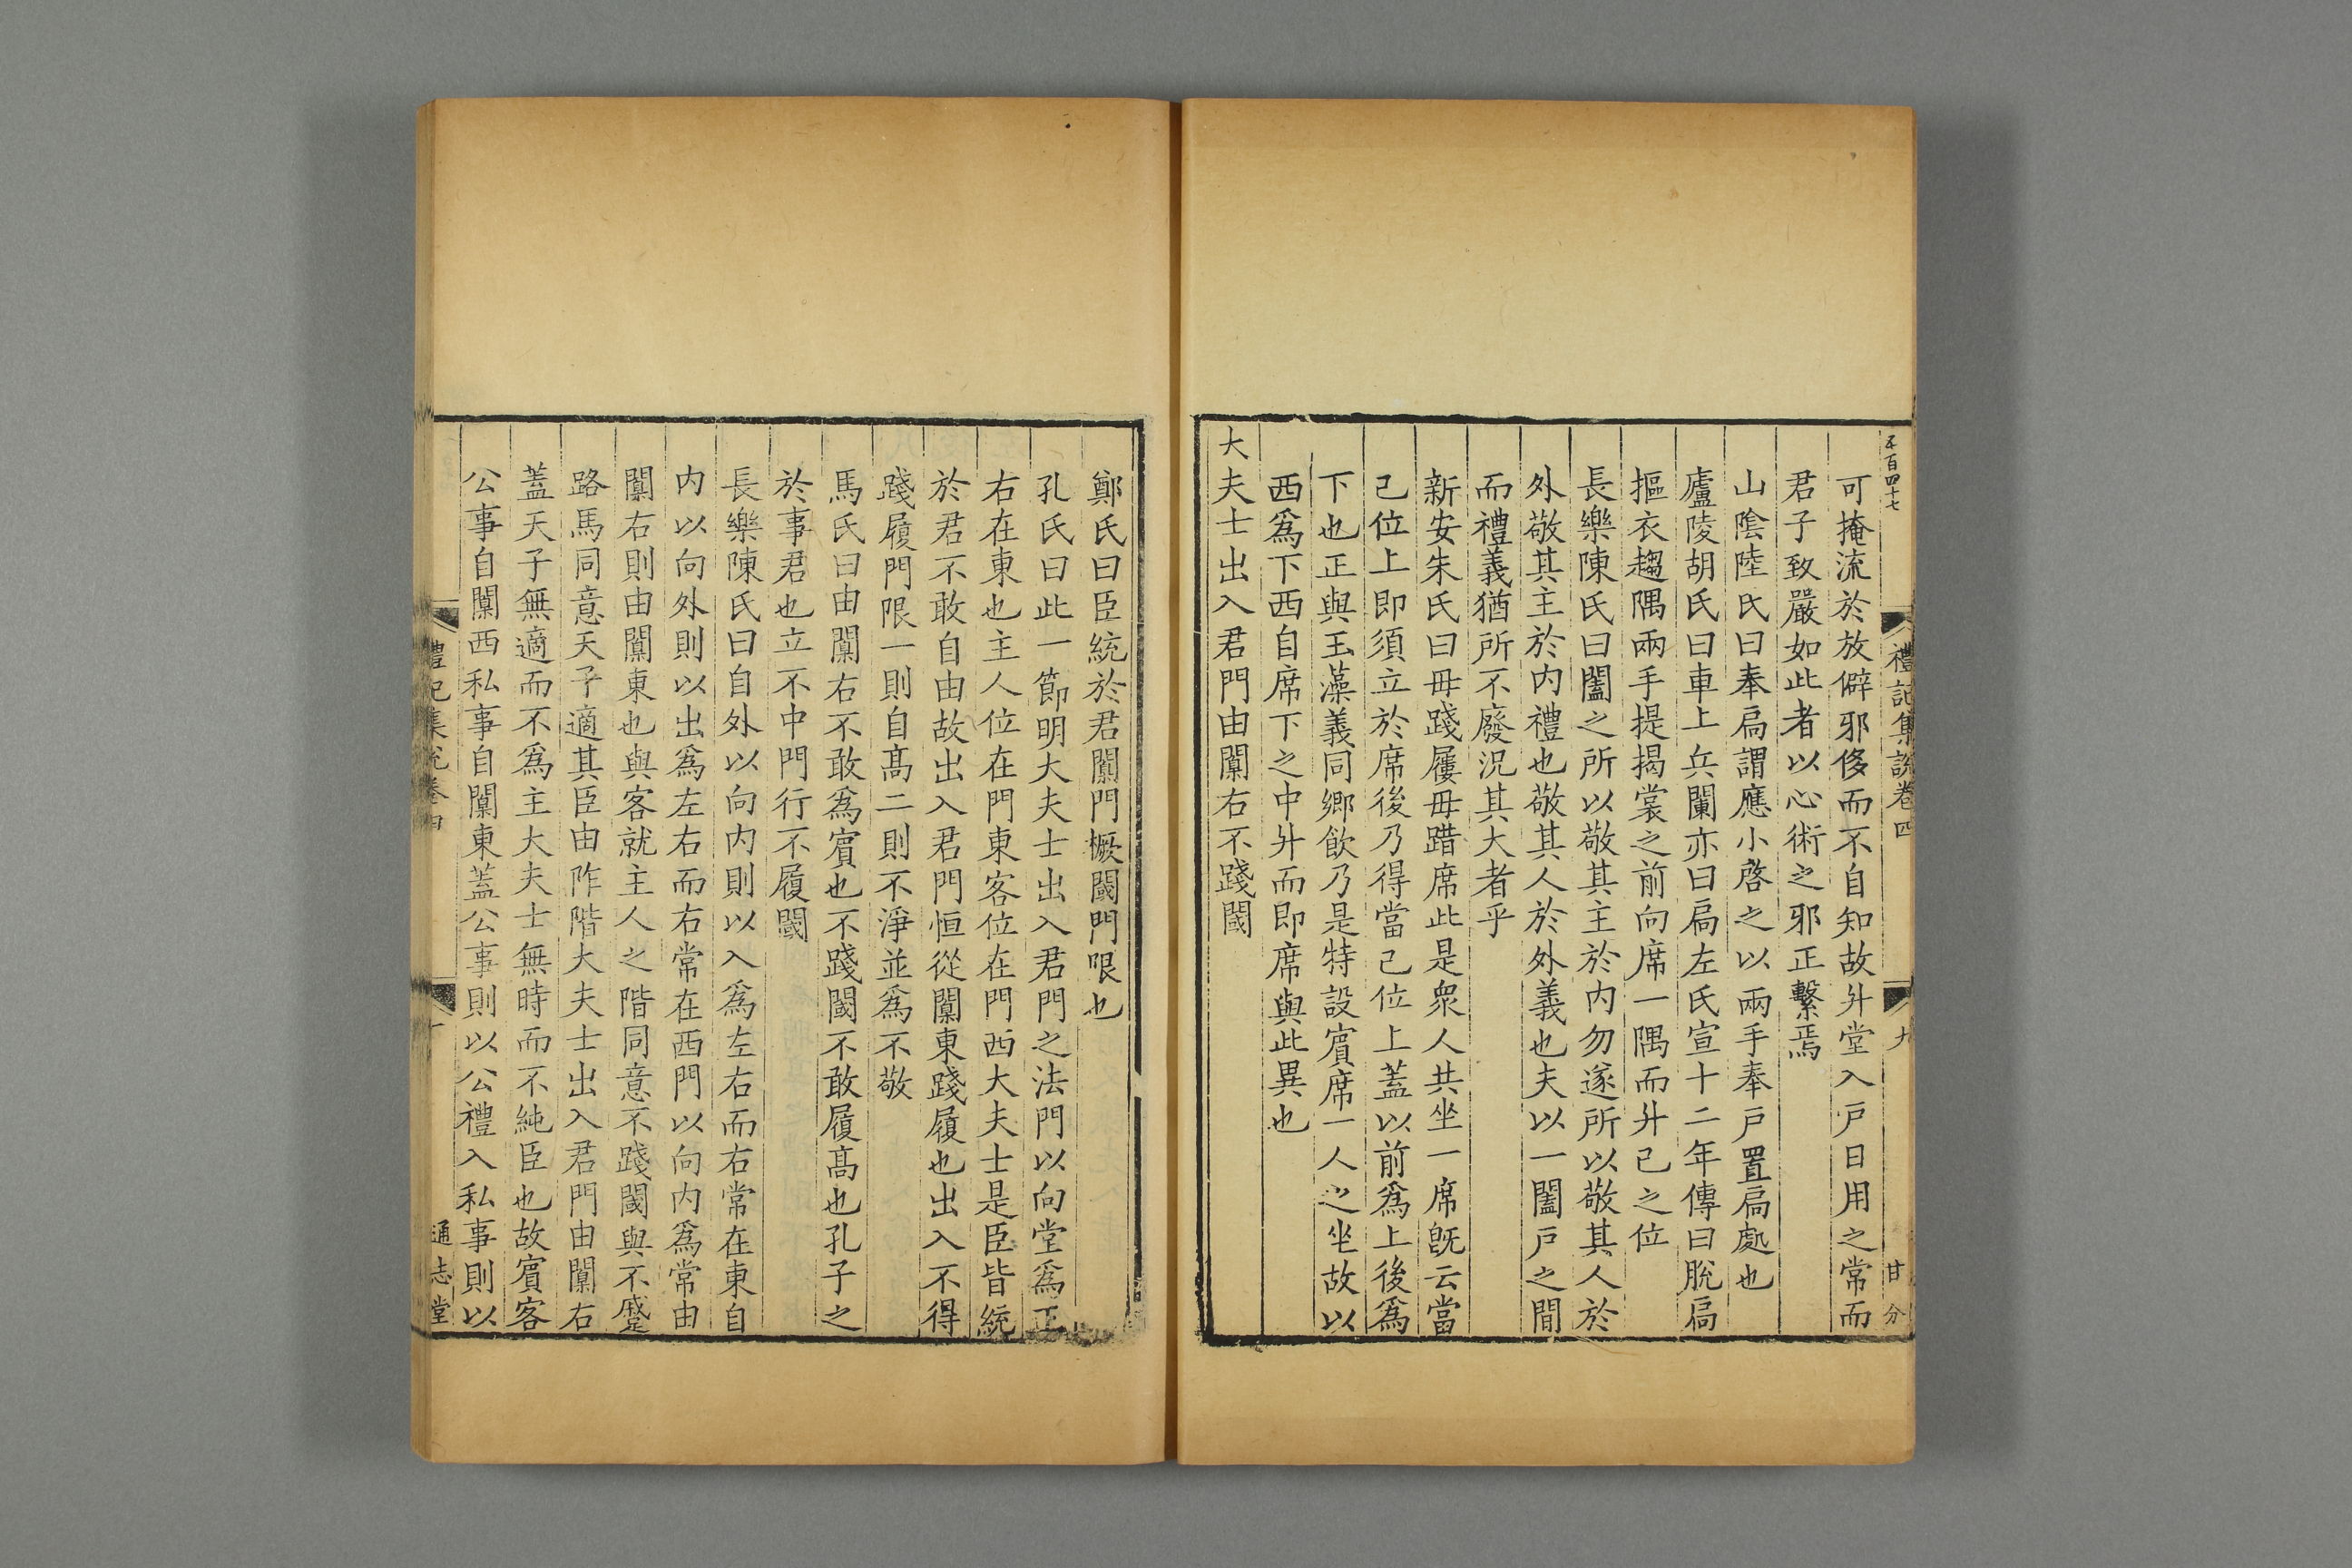 五百四十七 禮記集說卷四 九 甘分
可掩流於放僻邪侈而不自知故升堂入戸日用之常而
君子致嚴如此者以心術之邪正繫焉
山陰陸氏曰奉扃謂應小啓之以兩手奉戸置扃處也
廬陵胡氏曰車上兵闌亦曰扃左氏宣十二年傳曰脫扃
摳衣趨隅兩手提揭裳之前向席一隅而升已之位
長樂陳氏曰闔之所以敬其主於内勿遂所以敬其人於
外敬其主於内禮也敬其人於外義也夫以一闔戸之間
而禮義猶所不廢況其大者乎
新安朱氏曰毋踐屨毋踖席此是衆人共坐一席旣云當
己位上即須立於席後乃得當己位上蓋以前爲上後爲
下也正與玉藻義同鄉飲乃是特設賔席一人之坐故以
西爲下西自席下之中升而即席與此異也
大夫士出入君門由闑右不踐閾
鄭氏曰臣統於君闑門橛閾門限也
孔氏曰此一節明大夫士出入君門之法門以向堂爲正
右在東也主人位在門東客位在門西大夫士是臣皆統
於君不敢自由故出入君門恒從闑東踐履也出入不得
踐履門限一則自髙二則不淨並爲不敬
馬氏曰由闑右不敢爲賔也不踐閾不敢履髙也孔子之
於事君也立不中門行不履閾
長樂陳氏曰自外以向内則以入爲左右而右常在東自
内以向外則以出爲左右而右常在西門以向内爲常由
闑右則由闑東也與客就主人之階同意不踐閾與不蹙
路馬同意天子適其臣由阼階大夫士出入君門由闑右
蓋天子無適而不爲主大夫士無時而不純臣也故賔客
公事自闑西私事自闑東蓋公事則以公禮入私事則以
禮記集說卷四 十 通志堂